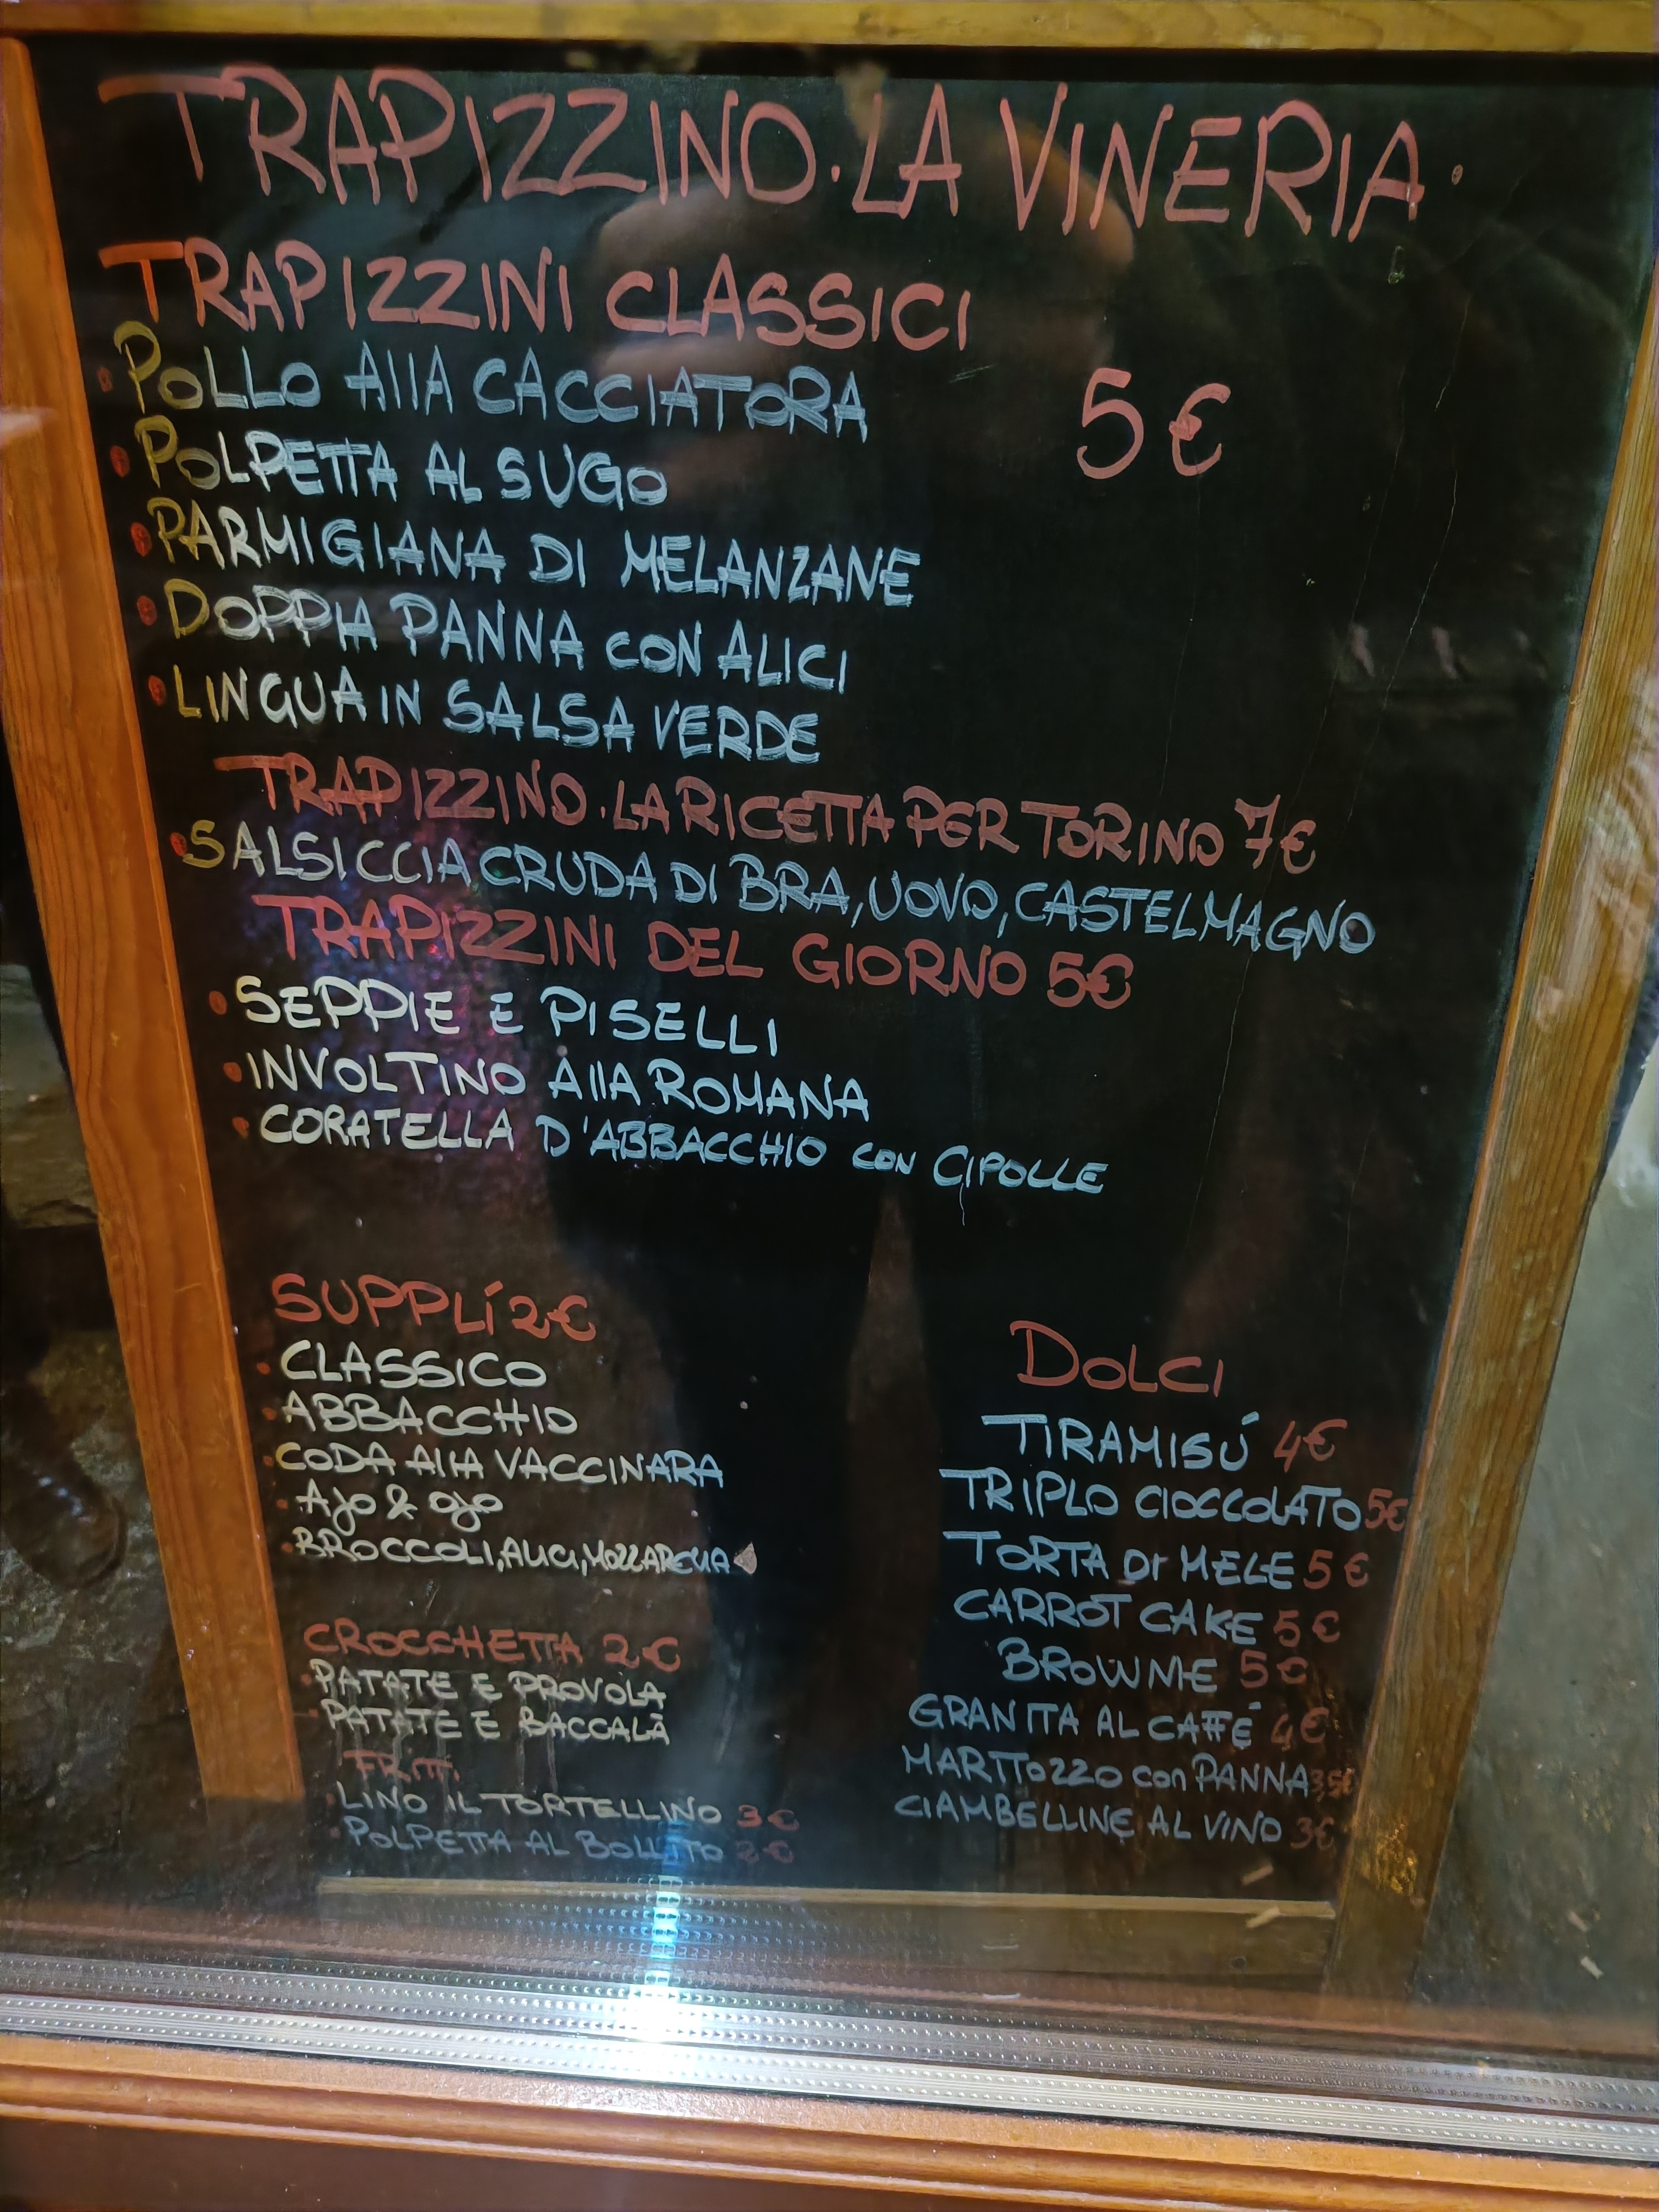 TRAPIZZINO · LA VINERIA ·
TRAPIZZINI CLASSICI
5€
• POLLO AllA CACCIATORA
• POLPETTA AL SUGO
• PARMIGIANA DI MELANZANE
• DOPPIA PANNA CON ALICI
• LINGUA IN SALSA VERDE
TRAPIZZINO · LA RICETTA PER TORINO 7€
• SALSICCIA CRUDA DI BRA, UOVO, CASTELMAGNO
TRAPIZZINI DEL GIORNO 5€
• SEPPIE E PISELLI
• INVOLTINO AllA ROMANA
• CORATELLA D'ABBACCHIO CON CIPOLLE
SUPPLÍ 2€
• CLASSICO
• ABBACCHIO
• CODA AllA VACCINARA
• Ajo & ojo
• BROCCOLI, ALICI, MOZZARELLA
CROCCHETTA 2€
• PATATE E PROVOLA
• PATATE E BACCALÀ
FRITTI
• LINO IL TORTELLINO 3€
• POLPETTA AL BOLLITO 2€
DOLCI
TIRAMISÚ 4€
TRIPLO CIOCCOLATO 5€
TORTA DI MELE 5€
CARROT CAKE 5€
BROWNIE 5€
GRANITA AL CAFFÉ 4€
MARITTOZZO con PANNA 3,5€
CIAMBELLINE AL VINO 3€